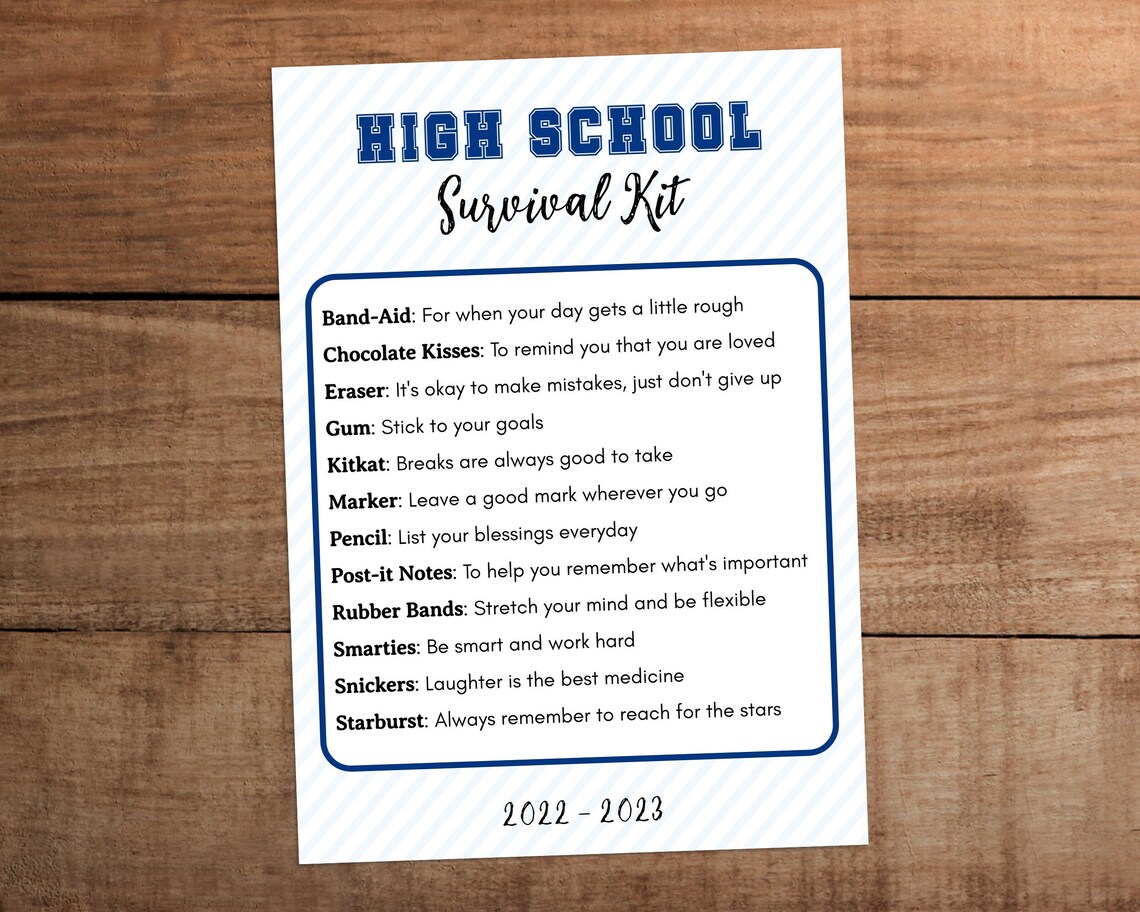 HIGH SCHOOL
Survival Kit
Band-Aid: For when your day gets a little rough
Chocolate Kisses: To remind you that you are loved
Eraser: It's okay to make mistakes, just don't give up
Gum: Stick to your goals
Kitkat: Breaks are always good to take
Marker: Leave a good mark wherever you go
Pencil: List your blessings everyday
Post-it Notes: To help you remember what's important
Rubber Bands: Stretch your mind and be flexible
Smarties: Be smart and work hard
Snickers: Laughter is the best medicine
Starburst: Always remember to reach for the stars
2022 - 2023